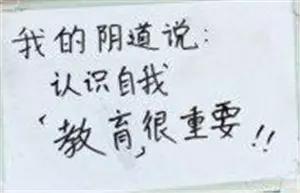 我的阴道说：
认识自我
「教育」很重要!!